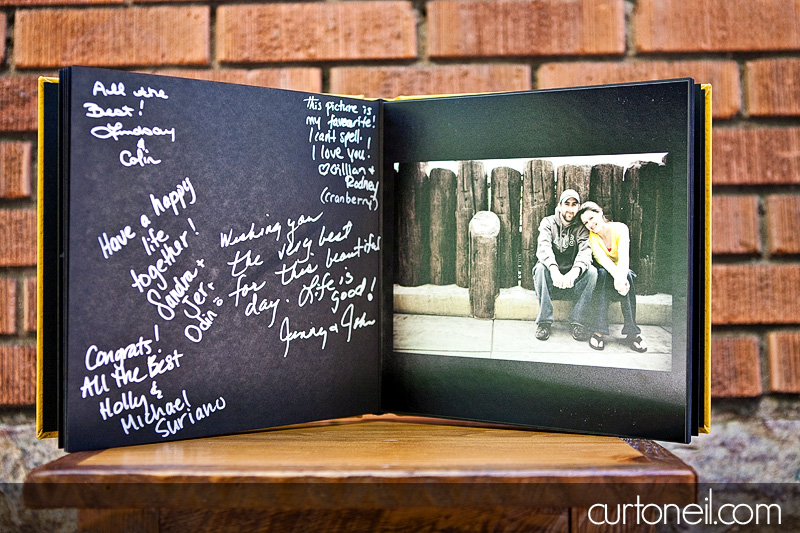 All the
Best!
Lindsay
&
Colin
this picture is
my favourite!
I can't spell.
I love you!
♡Gillian +
Rodney
(cranberry)
Have a happy
life
together!
Sandra +
Jer +
Odin
Wishing you
the very best
for this beautiful
day. Life is
good!
Jenny & John
Congrats!
All the Best
Holly &
Michael
Suriano
curtoneil.com